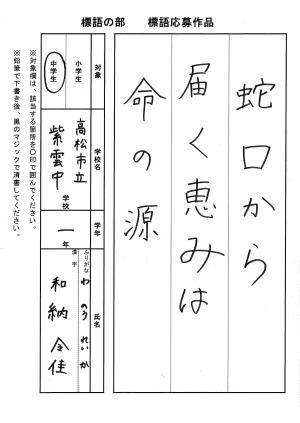 標語の部　標語応募作品
蛇口から
届く恵みは
命の源
対象
小学生
中学生
学校名
高松市立
紫雲中
学校
学年
一
年
氏名
ふりがな
わのう れいか
漢字
和納 令佳
※対象欄は、該当する箇所を○印で囲んでください。
※鉛筆で下書き後、黒のマジックで清書してください。